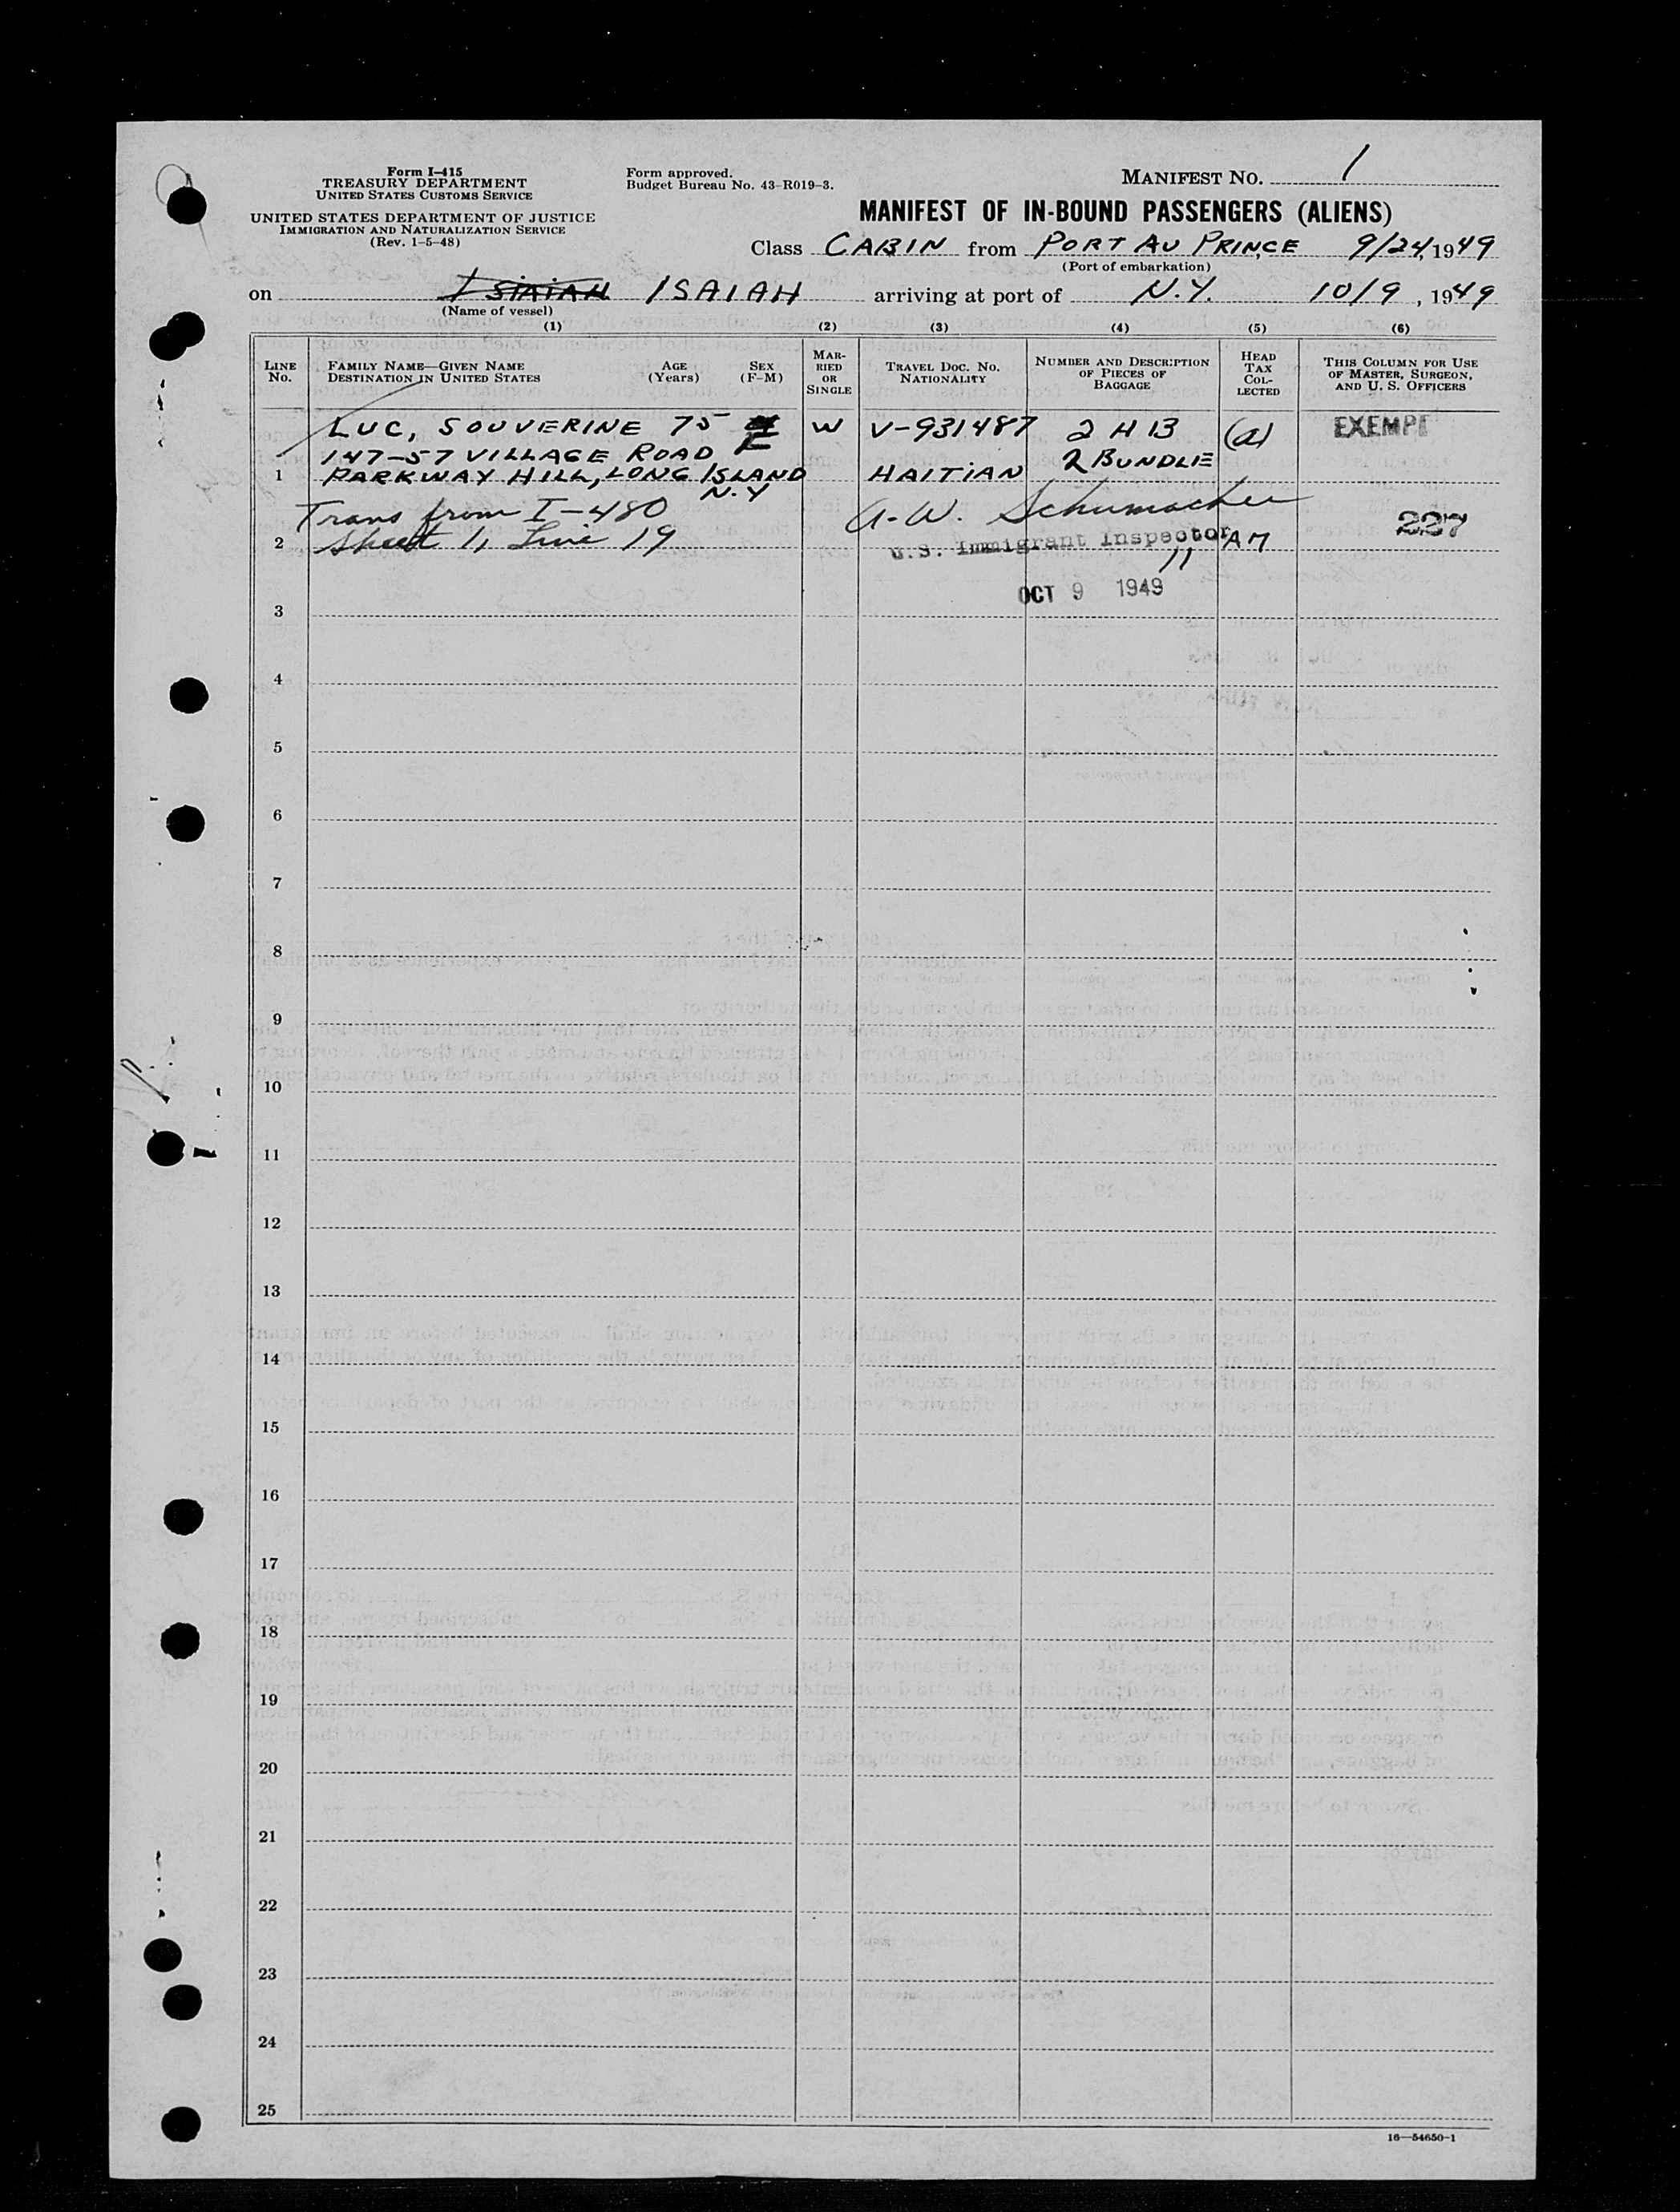 Form I-415
TREASURY DEPARTMENT
UNITED STATES CUSTOMS SERVICE
UNITED STATES DEPARTMENT OF JUSTICE
IMMIGRATION AND NATURALIZATION SERVICE
(Rev. 1-5-48)
Form approved.
Budget Bureau No. 43-R019-3.
MANIFEST NO. 1
MANIFEST OF IN-BOUND PASSENGERS (ALIENS)
Class CABIN from PORT AU PRINCE 9/24, 1949
(Port of embarkation)
on ISAIAH arriving at port of N.Y. 10/9, 1949
(Name of vessel)
(1) (2) (3) (4) (5) (6)
LINE No. FAMILY NAME—GIVEN NAME DESTINATION IN UNITED STATES AGE (Years) SEX (F-M) MARRIED OR SINGLE TRAVEL DOC. NO. NATIONALITY NUMBER AND DESCRIPTION OF PIECES OF BAGGAGE HEAD TAX COLLECTED THIS COLUMN FOR USE OF MASTER, SURGEON, AND U. S. OFFICERS
LUC, SOUVERINE 75 F W V-931487 2 H B (a) EXEMPT
147-57 VILLAGE ROAD 2 BUNDLE
1 PARKWAY HILL, LONG ISLAND HAITIAN
N.Y
Trans from I-480 A. W. Schumacher 227
2 Sheet 1, Line 19 U.S. Immigrant Inspector AM
11
OCT 9 1949
3
4
5
6
7
8
9
10
11
12
13
14
15
16
17
18
19
20
21
22
23
24
25
16—54650-1